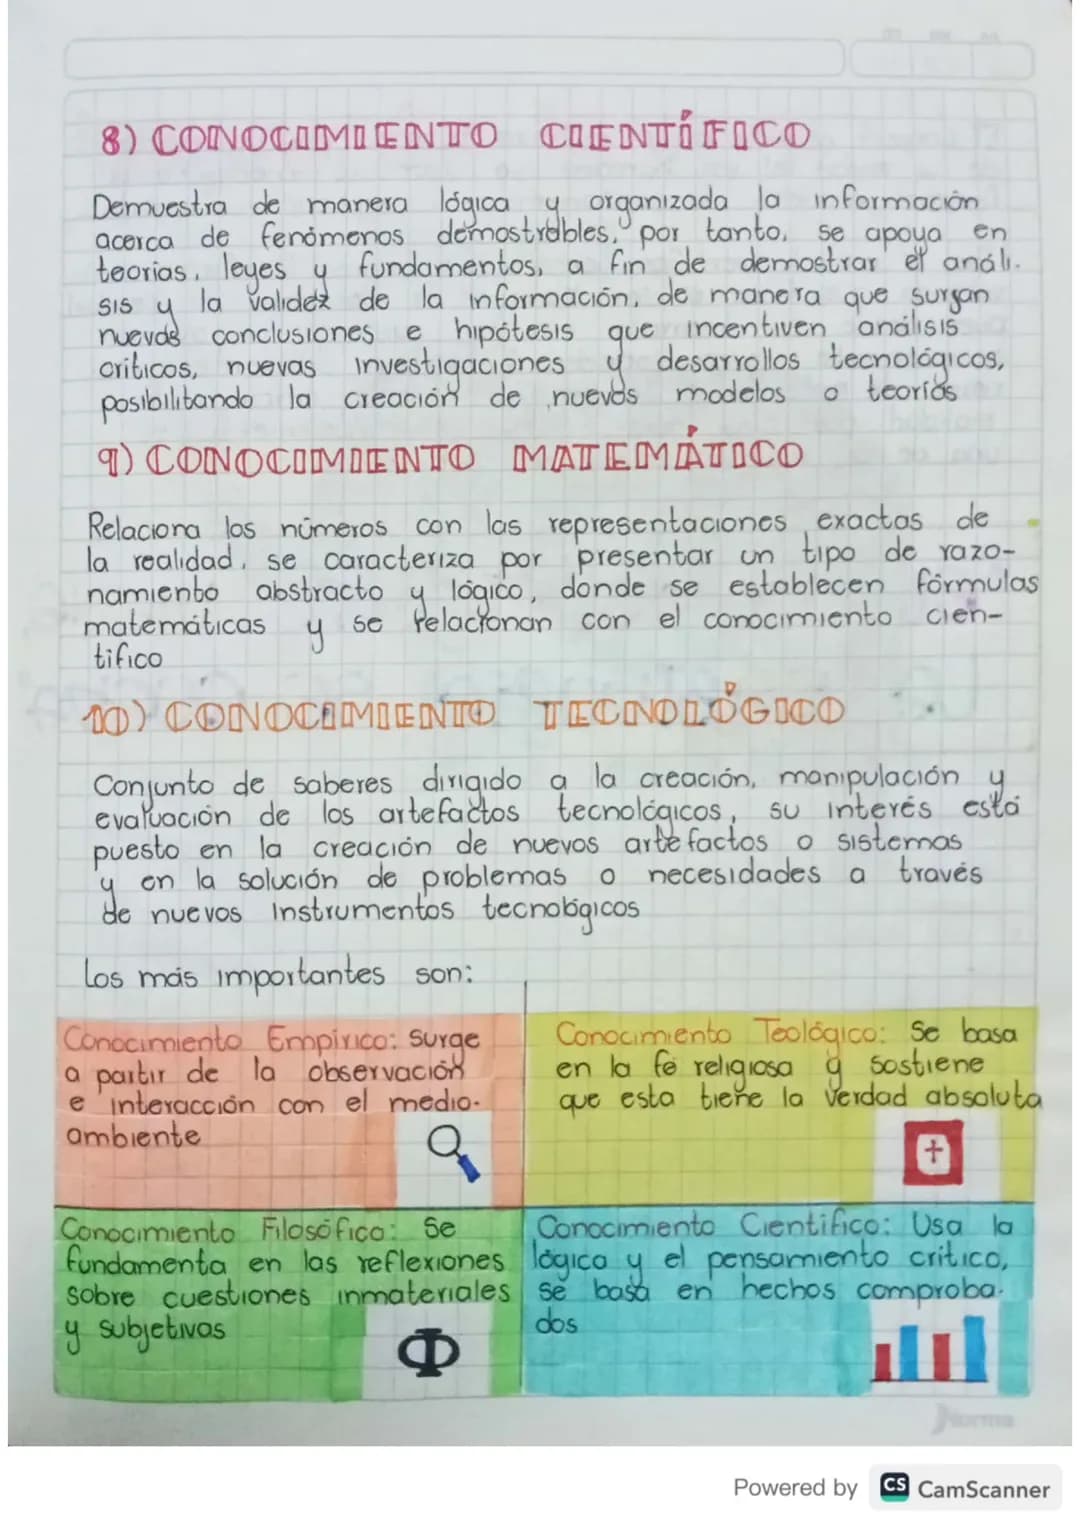 8) CONOCIMIENTO CIENTÍFICO
Demuestra de manera lógica y organizada la información
acerca de fenómenos demostrables, por tanto, se apoya en
teorías, leyes y fundamentos, a fin de demostrar el análi-
sis y la validez de la información, de manera que surjan
nuevas conclusiones e hipótesis que incentiven análisis
criticos, nuevas investigaciones y desarrollos tecnológicos,
posibilitando la creación de nuevos modelos o teorías
9) CONOCIMIENTO MATEMÁTICO
Relaciona los números con las representaciones exactas de
la realidad, se caracteriza por presentar un tipo de razo-
namiento abstracto y lógico, donde se establecen fórmulas
matemáticas y se relacionan con el conocimiento cien-
tifico
10) CONOCIMIENTO TECNOLÓGICO
Conjunto de saberes dirigido a la creación, manipulación y
evaluación de los artefactos tecnológicos, su interés está
puesto en la creación de nuevos artefactos o sistemas
y en la solución de problemas o necesidades a través
de nuevos instrumentos tecnológicos
Los más importantes son:
Conocimiento Empírico: Surge
a partir de la observación
e interacción con el medio-
ambiente
Conocimiento Teológico: Se basa
en la fé religiosa y sostiene
que esta tiene la verdad absoluta
Conocimiento Filosófico: Se
fundamenta en las reflexiones
sobre cuestiones inmateriales
y subjetivas
Φ
Conocimiento Cientifico: Usa la
lógica y el pensamiento critico,
se basa en hechos comproba-
dos
Norma
Powered by CS CamScanner